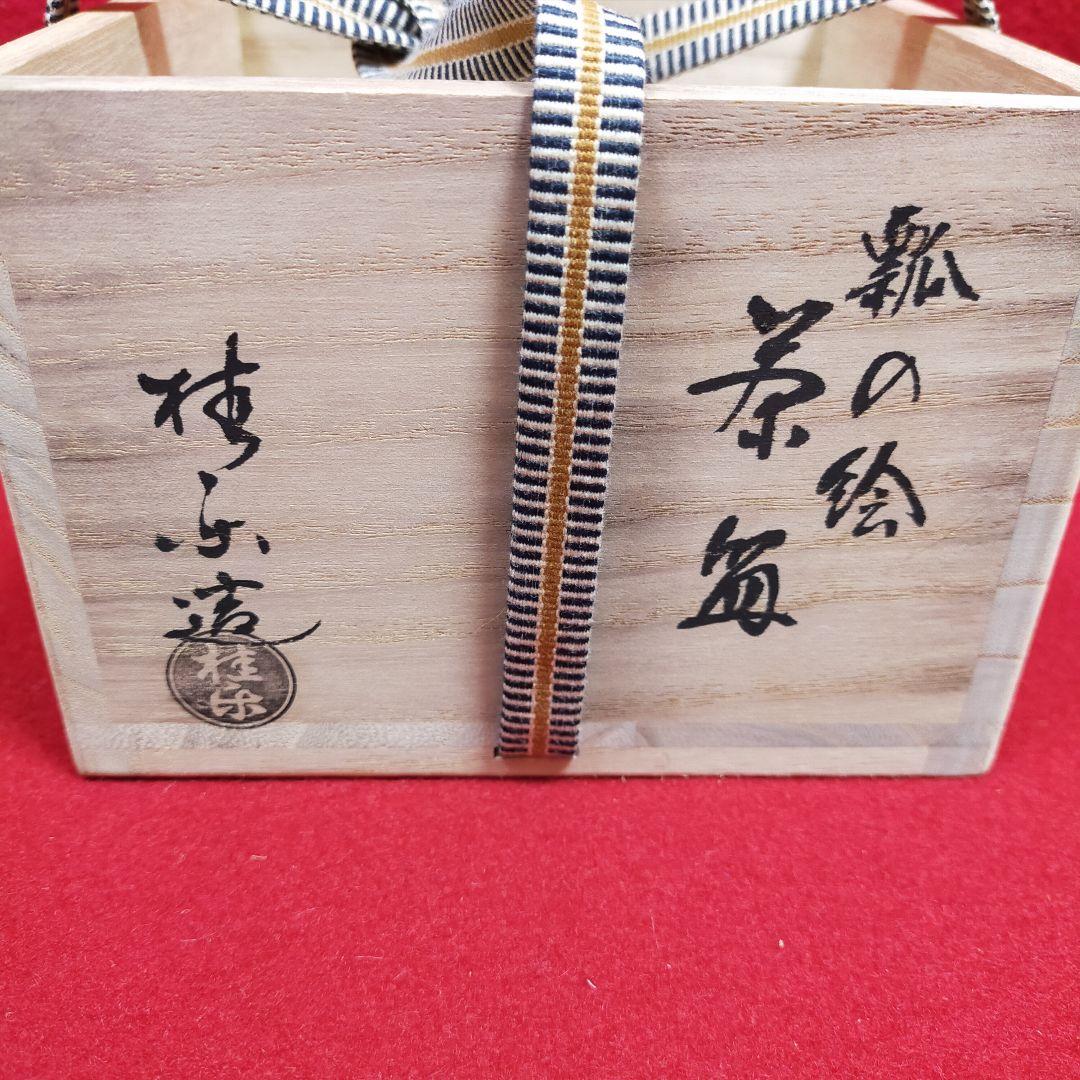 瓢の絵
茶盌
桂楽造
桂楽